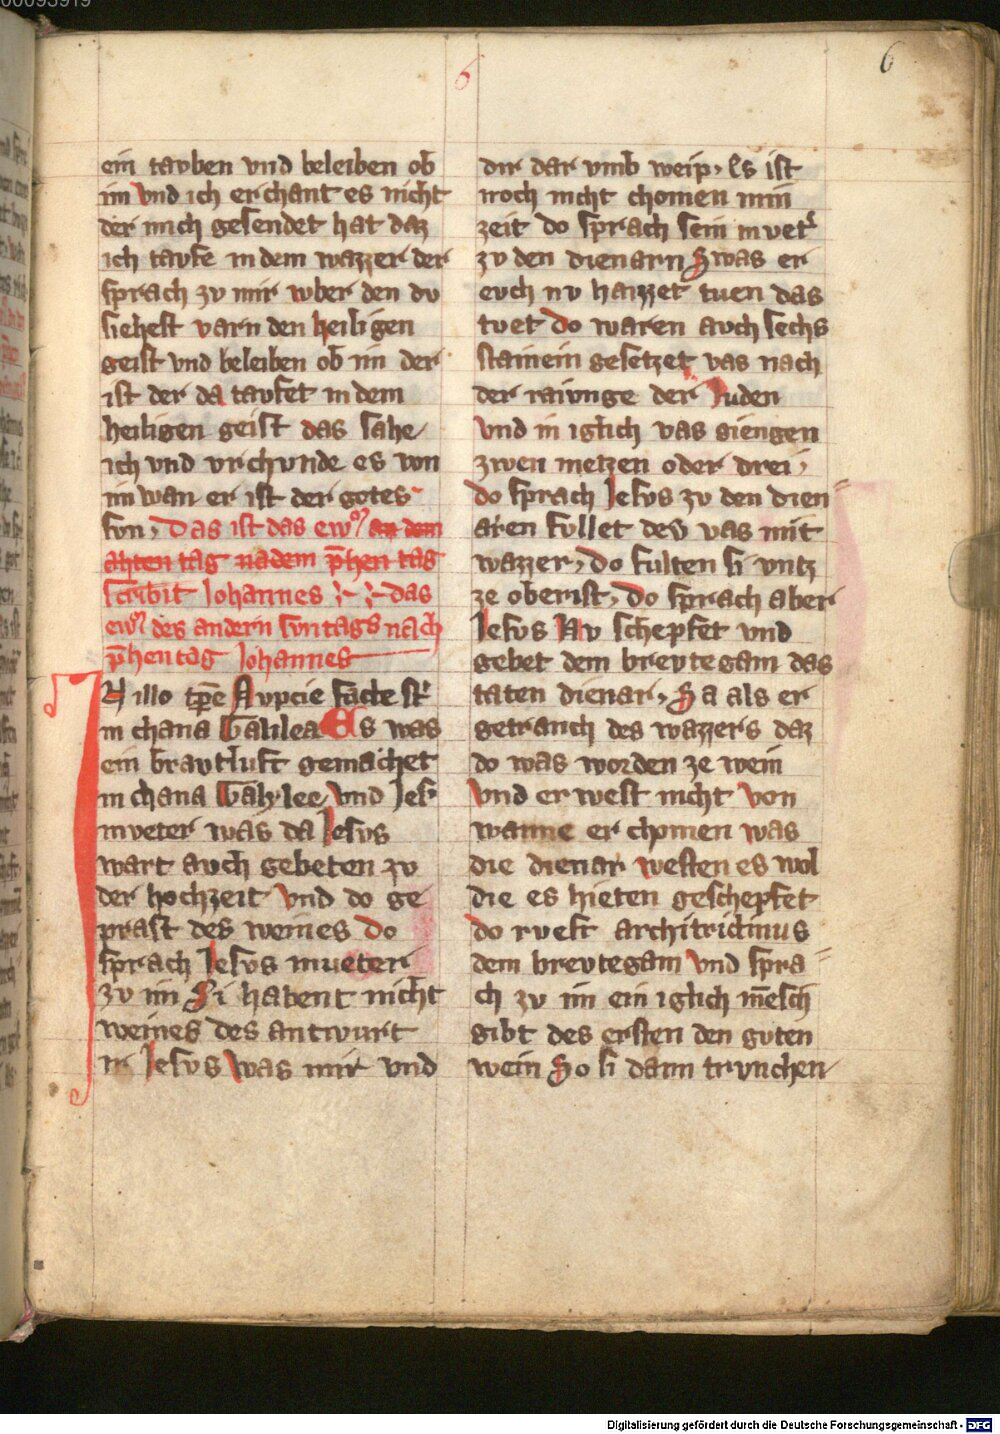 00093919
6
6
ein tavben vnd beleiben ob
im vnd ich erchant es nicht
der mich gesendet hat daz
ich tavfe in dem wazzer der
sprach zv mir wber den dv
siehest varn den heiligen
geist vnd beleiben ob im der
ist der da tavfet in dem
heiligen geist das sahe
ich vnd vrchvnde es von
im wan er ist der gotes
svn, Das ist das ew an dem
ahten tag nadem p̄hen tag
scribit Johannes das
ew des andern svntags nach
p̄hen tag Johannes
In illo tp̄e Nvpcie facte st
in chana Galilea Es was
ein bravtluft gemachet
in chana Galylee vnd Jes
mveter was da Jesvs
wart avch gebeten zv
der hochzeit vnd do ge
prast des weines do
sprach Jesvs mveter
zv im Si habent nicht
weines des antwurt
ir Jesvs was mir vnd
dir dar vmb weip, Es ist
noch nicht chomen min
zeit do sprach sein mvet
zv den dienarn Swas er
evch nv haizzet tuen das
tvet do waren avch sechs
stainein gesetzet vas nach
der raivnge der Juden
vnd in iglich vas giengen
zwen metzen oder drei,
do sprach Jesvs zv den dien
aren fvllet dev vas mit
wazzer, do fulten si vntz
ze oberist, do sprach aber
Jesvs Nv schepfet vnd
gebet dem brevtegam das
taten dienar, Sa als er
getranch des wazzers daz
do was worden ze wein
vnd er west nicht von
wanne er chomen was
die dienar westen es wol
die es hieten geschepfet
do rveft architriclinus
dem brevtegam vnd spra
ch zv im ein iglich mēsch
gibt des ersten den gvten
wein So si dann trvnchen
Digitalisierung gefördert durch die Deutsche Forschungsgemeinschaft - DFG